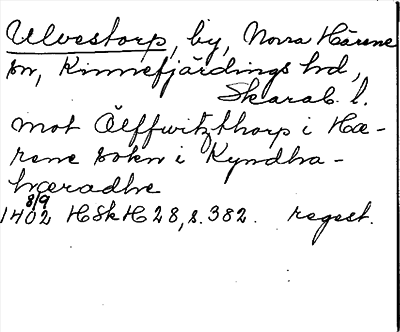 Ulvestorp, by, Norra Härene
sn, Kinnefjärdings hd,
Skarab. l.
mot Ælffwitzthorp i Hæ-
rene sokn i Kyndha-
hæradhe
1402 8/9 HSkH 28, s. 382. regest.